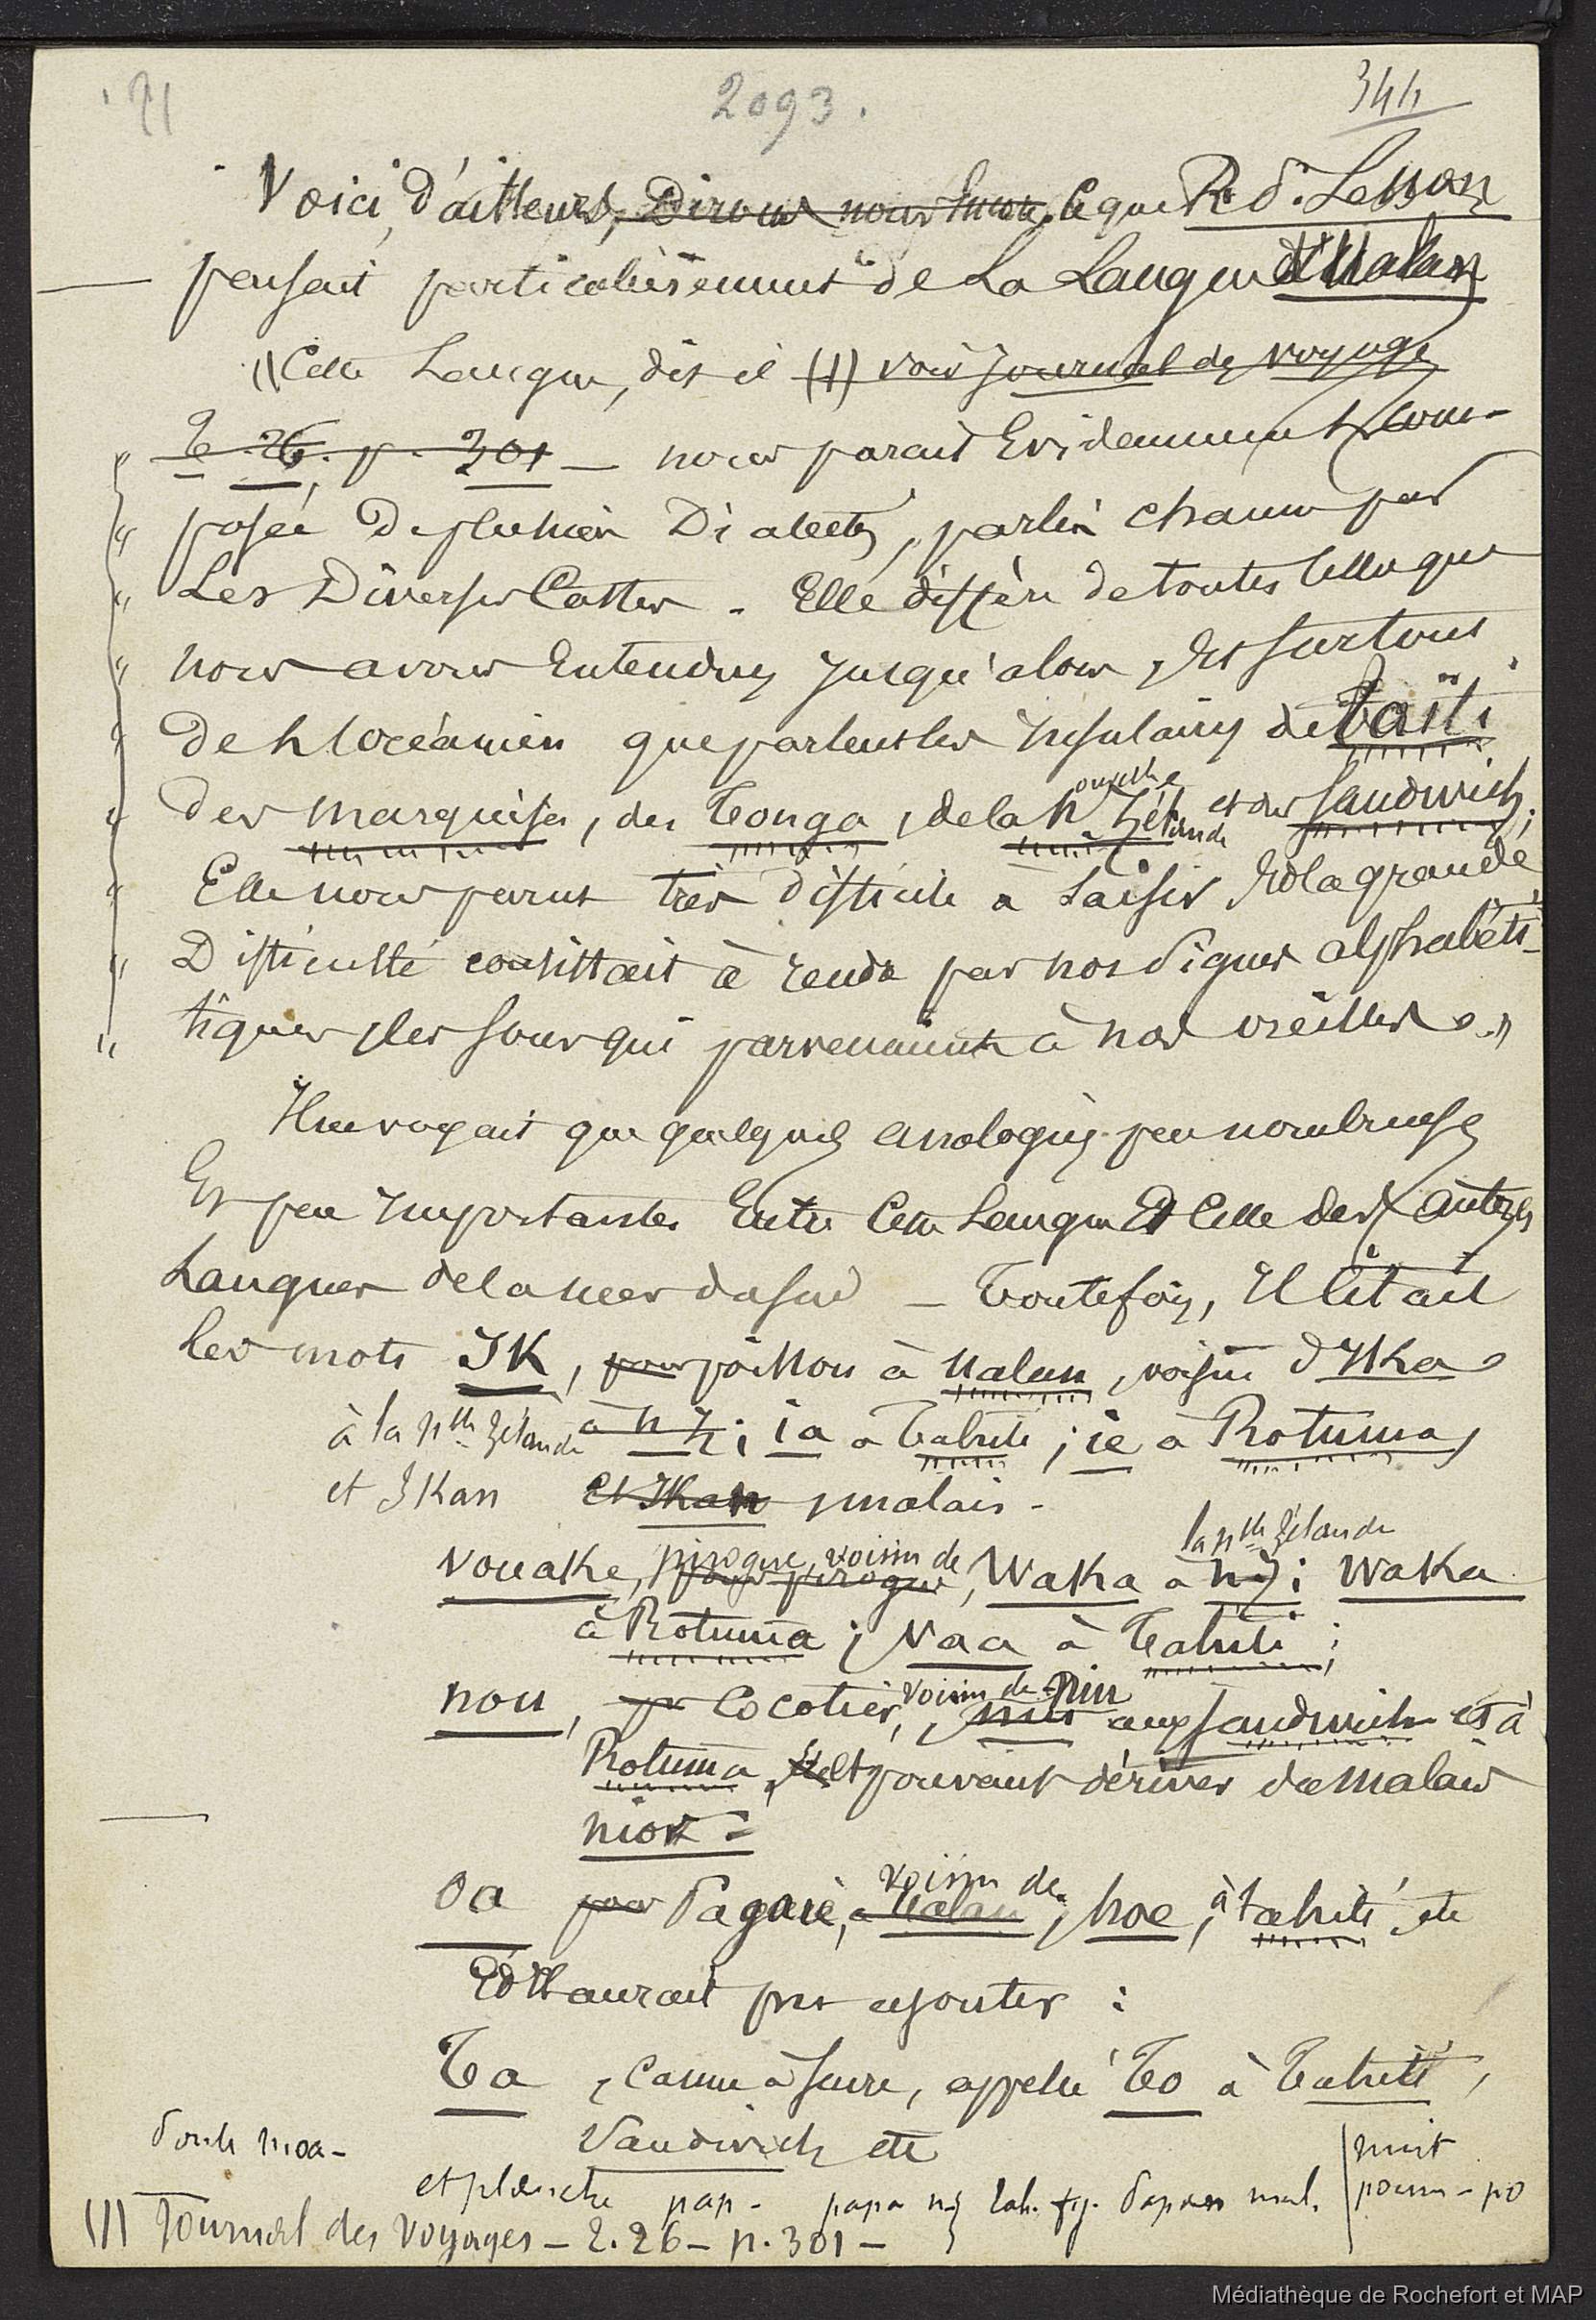 2093.
344
Voici, d'ailleurs, Dirons nous encore ce que R. d. Lesson
pensait particulièrement de La Langue d'Ualan
"Cette Langue, dit il (1) voir Journal des voyages
T. 26. p. 301 — nous parait Evidemment com-
posée de plusieurs Dialectes, parlés chacun par
Les Diverses Castes. Elle diffère de toutes Celles que
nous avons Entendues jusqu'alors, et surtout
de l'océanien que parlent les Insulaires de Taïti
des marquises, des Tonga, de la nouvelle Zélande et des Sandwich;
Elle nous parut très difficile à saisir et la grande
Difficulté consistait à rendre par nos signes alphabéti-
tiques, les sons qui parvenaient à nos oreilles."
Il ne voyait que quelques analogies peu nombreuses
Et peu Importantes Entre Cette Langue Et Celle des autres
Langues de la mer du sud — Toutefois, Il citait
les mots IK, pour poisson à Ualan, voisin d'Ika
à la nlle Zélande à n Z; ia à Tahiti; ié à Rotuma,
et Ikan et Ikan malais.
Vouaka, pour pirogue pirogue, voisin de Waka à n Z la nlle Zélande; Waka
à Rotuma; Vaa à Tahiti;
nou, pr Cocotier, voisin de niu aux Sandwich et à
Rotuma, et pouvant dériver du malais
nior.
Oa pour Pagaie, à Ualan voisin de hoe, à tahiti etc
Et Il aurait pu ajouter:
Ta, canne à sucre, appelée To à Tahiti,
Sandwich etc
et planche pap. papa n Z tah. fij. papan mal.
nuit
poum - po
(1) Journal des Voyages — T. 26 — p. 301 —
Médiathèque de Rochefort et MAP